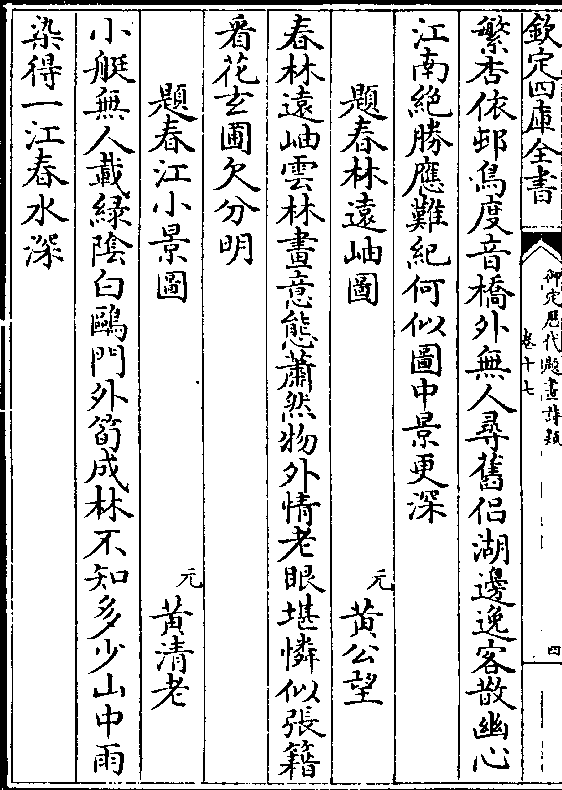 欽定四庫全書
御定歷代題畫詩類
卷十七
四
繁杏依邨鳥度音橋外無人尋舊侣湖邊逸客散幽心
江南絶勝應難紀何似圖中景更深
題春林遠岫圖
元
黄公望
春林遠岫雲林畫意態蕭然物外情老眼堪憐似張籍
看花玄圃欠分明
題春江小景圖
元
黄清老
小艇無人載緑陰白鷗門外筍成林不知多少山中雨
染得一江春水深